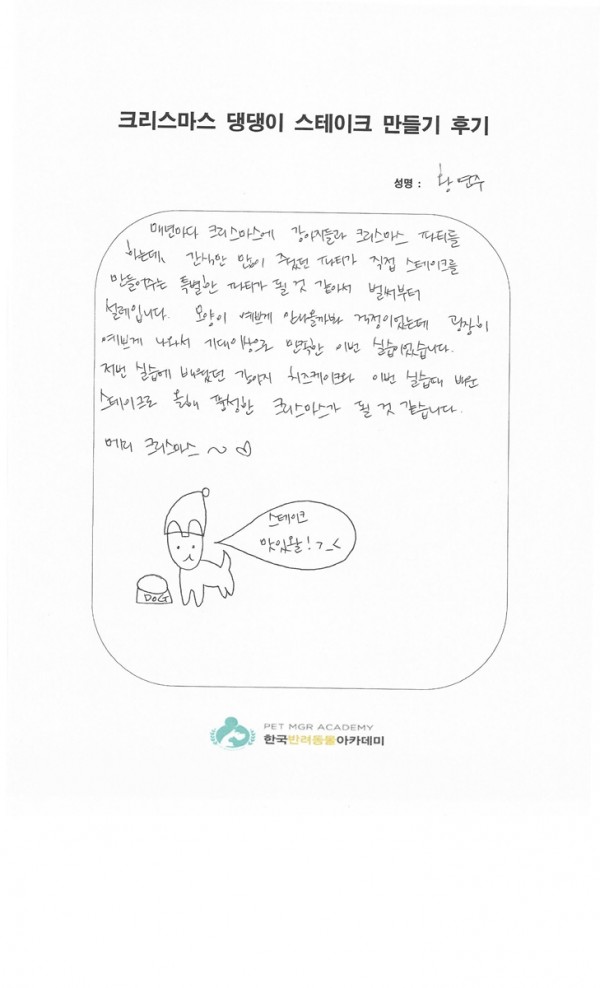 크리스마스 댕댕이 스테이크 만들기 후기
성명 : 황연주
매년마다 크리스마스에 강아지들과 크리스마스 파티를
하는데, 간식만 많이 주었던 파티가 직접 스테이크를
만들어주는 특별한 파티가 될 것 같아서 벌써부터
설레입니다. 모양이 예쁘게 안나올까봐 걱정이었는데 굉장히
예쁘게 나와서 기대이상으로 만족한 이번 실습이었습니다.
저번 실습에 배웠던 강아지 치즈케이크와 이번 실습때 배운
스테이크로 올해 풍성한 크리스마스가 될 것 같습니다.
메리 크리스마스 ~ ♡
스테이크
맛있왈! >_<
DOG
PET MGR ACADEMY
한국반려동물아카데미